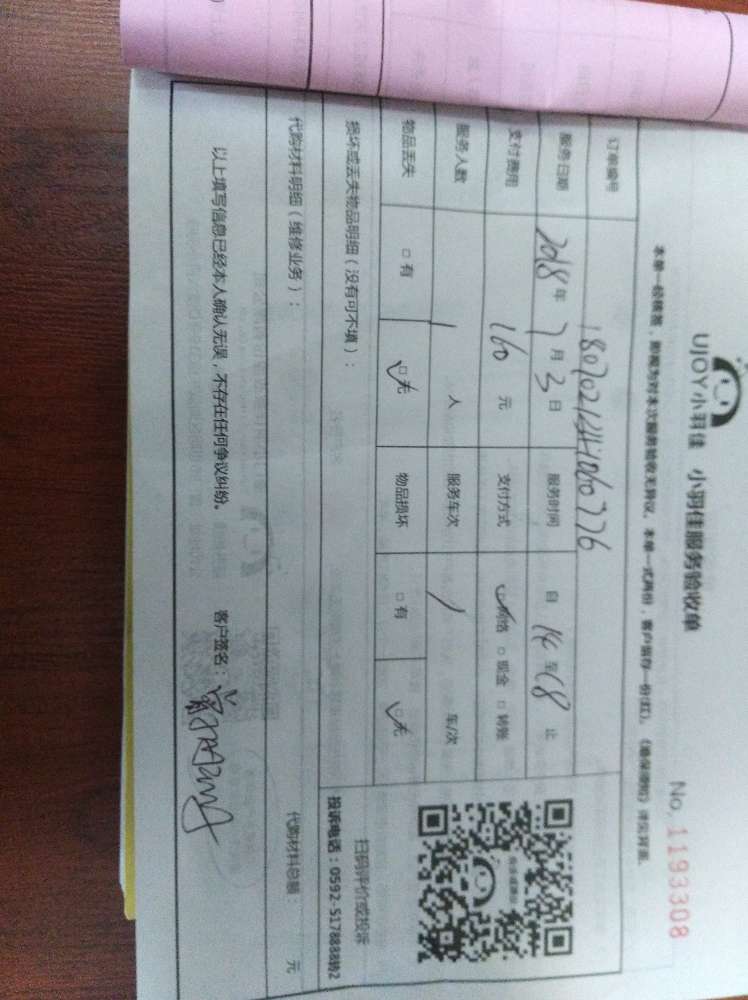 UJOY小羽佳 小羽佳服务验收单
No. 1193308
本单一经核签，即视为对本次服务验收无异议。本单一式两份，客户留存一份(红)。《确保须知》详见背面。
订单编号 180702154106076
服务日期 2018年7月3日 服务时间 自14至18止
支付费用 160元 支付方式 网络 现金 转账
服务人数 1人 服务车次 / 车/次
物品丢失 有 无 物品损坏 有 无
损坏或丢失物品明细（没有可不填）：
扫码评价或投诉
投诉电话：0592-5178888转2
代购材料明细（维修业务）：
代购材料总额： 元
以上填写信息已经本人确认无误，不存在任何争议纠纷。 客户签名：